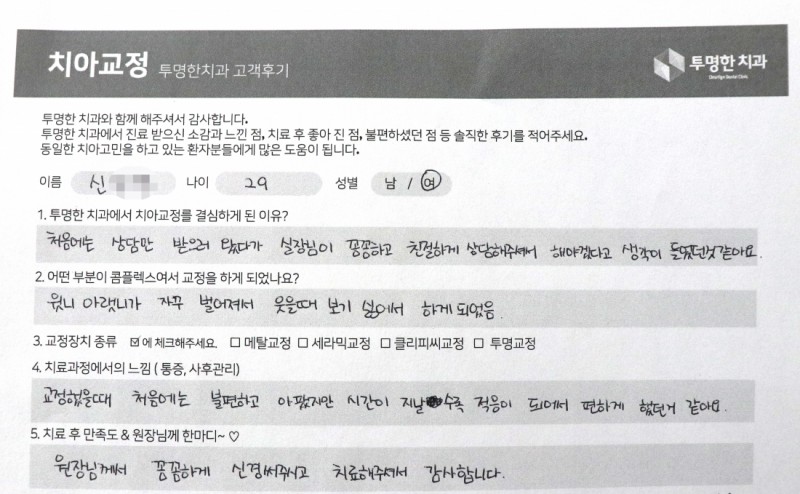 치아교정 투명한치과 고객후기
투명한 치과
투명한 치과와 함께 해주셔서 감사합니다.
투명한 치과에서 진료 받으신 소감과 느낀 점, 치료 후 좋아 진 점, 불편하셨던 점 등 솔직한 후기를 적어주세요.
동일한 치아고민을 하고 있는 환자분들에게 많은 도움이 됩니다.
이름 신 나이 29 성별 남 / 여
1. 투명한 치과에서 치아교정를 결심하게 된 이유?
처음에는 상담만 받으러 왔다가 실장님이 꼼꼼하고 친절하게 상담해주셔서 해야겠다고 생각이 들었던것같아요.
2. 어떤 부분이 콤플렉스여서 교정을 하게 되었나요?
윗니 아랫니가 자꾸 벌어져서 웃을때 보기 싫어서 하게되었음.
3. 교정장치 종류 ☑에 체크해주세요. □ 메탈교정 □ 세라믹교정 □ 클리피씨교정 □ 투명교정
4. 치료과정에서의 느낌 ( 통증, 사후관리)
교정했을때 처음에는 불편하고 아팠지만 시간이 지날 수록 적응이 되어서 편하게 했던거 같아요.
5. 치료 후 만족도 & 원장님께 한마디~ ♡
원장님께서 꼼꼼하게 신경써주시고 치료해주셔서 감사합니다.